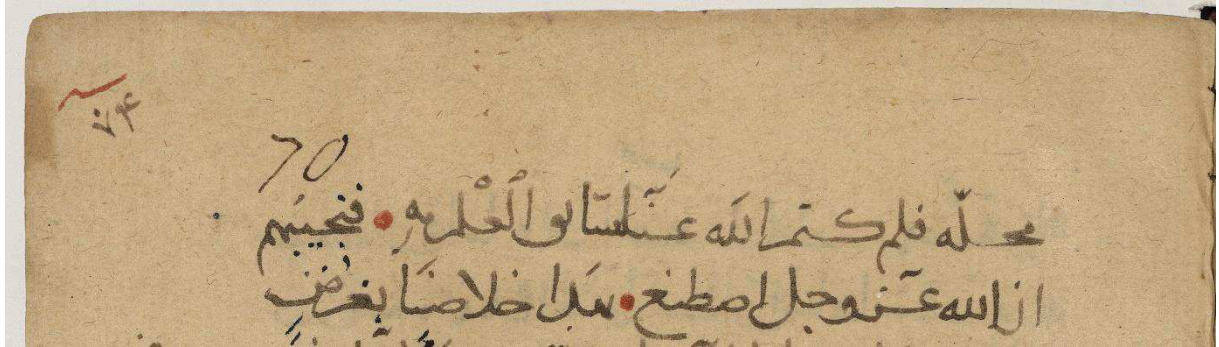 70
محلّه فلم كتم الله عنّا سابق العلم به • فنجيبهم
ان الله عزّ وجل اصطنع • هذا خلاصنا بغرض